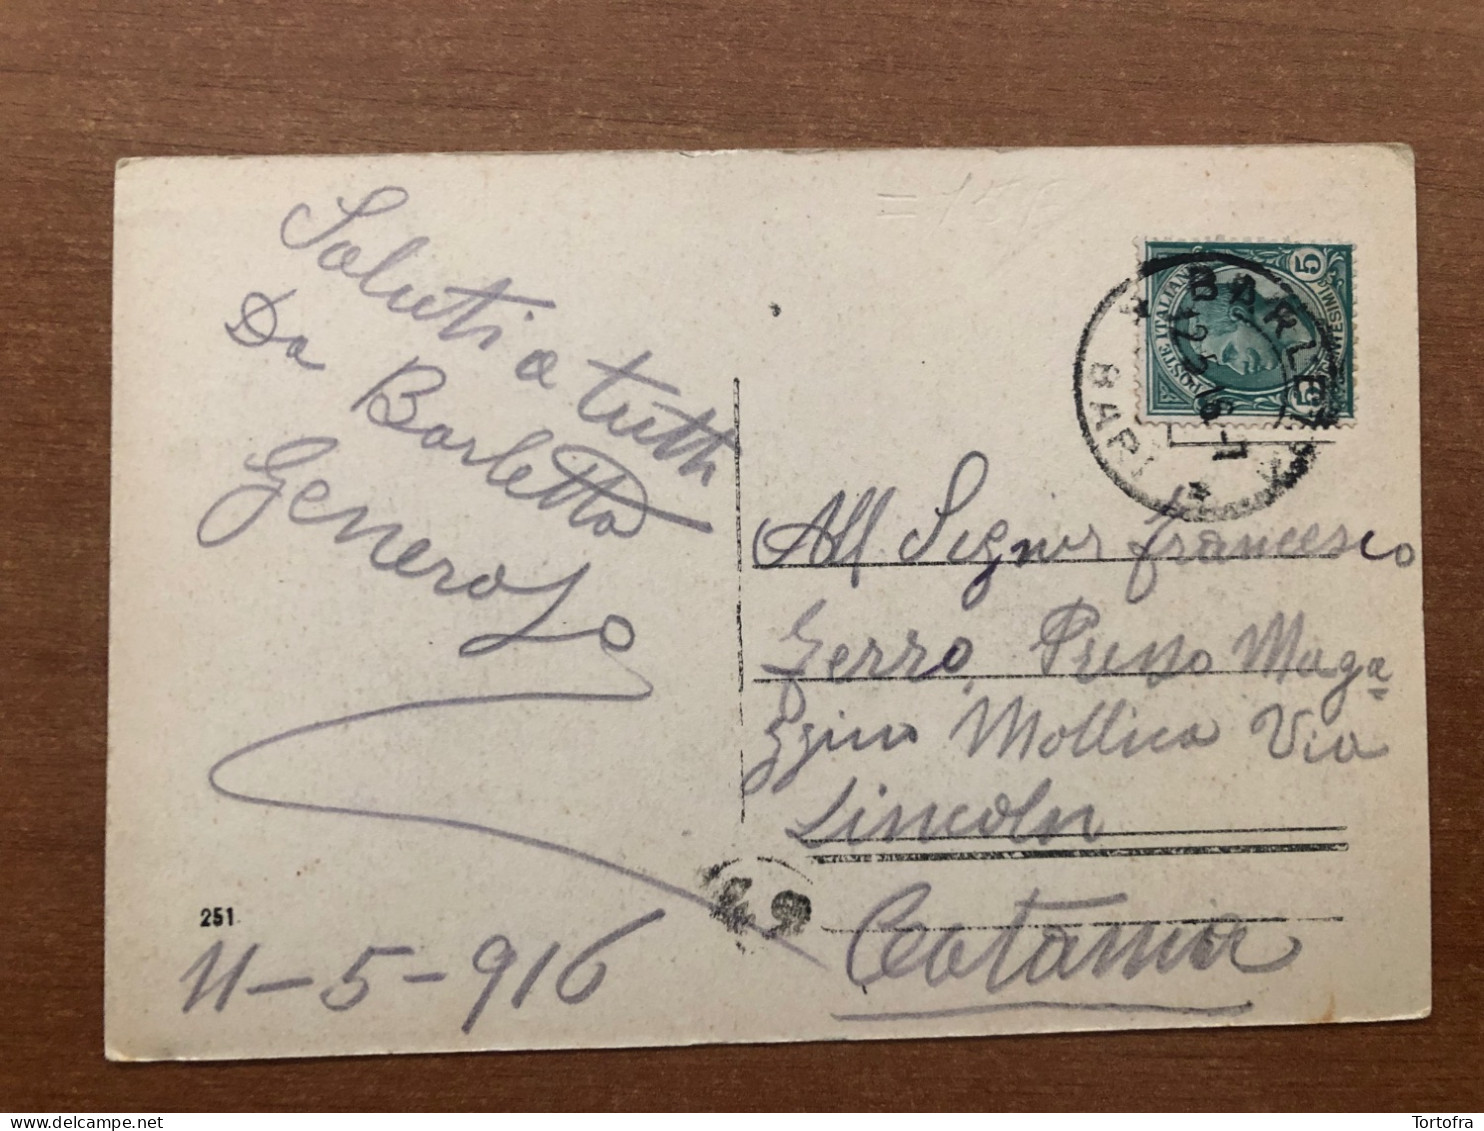 Saluti a tutti
Da Barletta
Generoso
251
11-5-916
POSTE ITALIANE
5 5
BARLETTA
BARI
All Signor Francesco
Zerro, Presso Maga
zzino Mollica Via
Lincoln
Catania
Tortofra